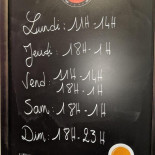 Lundi: 11H-14H
Jeudi: 18H-1H
Vend: 11H-14H
18H-1H
Sam: 18H-1H
Dim: 18H-23H